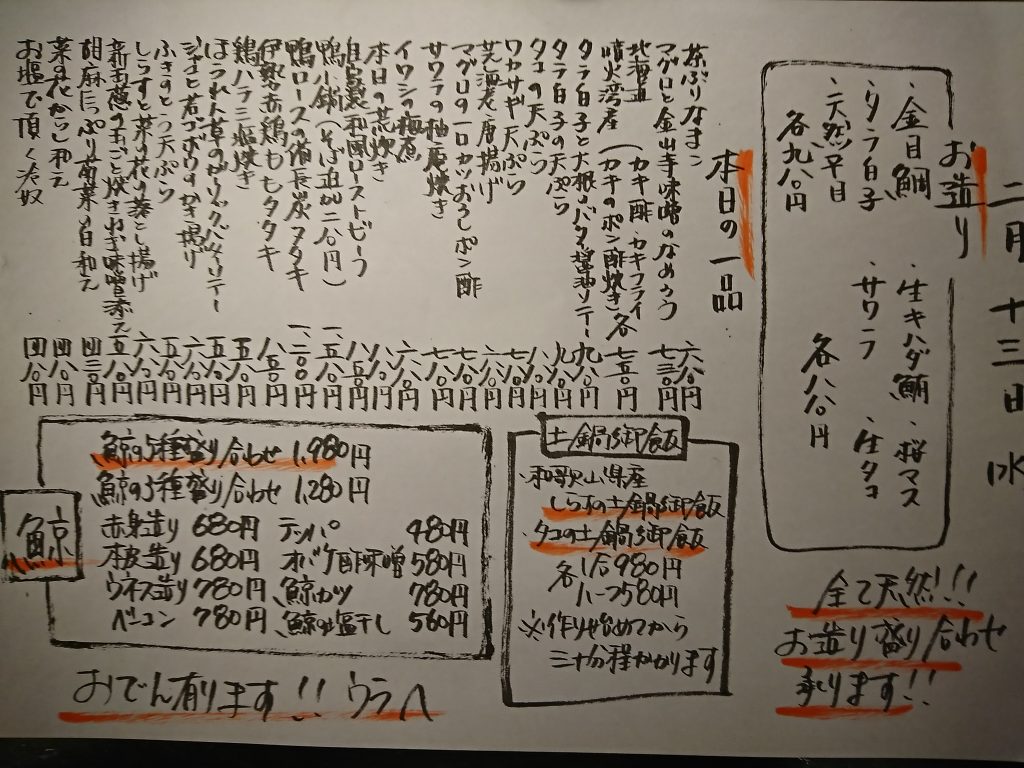 二月十三日 水
お造り
・金目鯛 ・生キハダ鮪 ・桜マス
・タラ白子 ・サワラ ・生タコ
・天然平目
各九八〇円 各八八〇円
全て天然!!
お造り盛り合わせ
承ります!!
本日の一品
茶ぶりなまこ 六八〇円
マグロと金山寺味噌のなめろう 七三〇円
北海道
噴火湾産(カキ酢・カキフライ
カキのポン酢焼き 各七五〇円
タラ白子と大根のバター醤油ソテー 九八〇円
タラ白子の天ぷら 九八〇円
タコの天ぷら 八八〇円
ワカサギ天ぷら 七八〇円
芝海老唐揚げ 六八〇円
マグロの一口カツおろしポン酢 七八〇円
サワラの柚庵焼き 七八〇円
イワシの梅煮 六八〇円
本日の荒炊き
自家製和風ローストビーフ 八八〇円
鴨小鍋(そば追加二八〇円)
鴨ロースの備長炭タタキ
伊勢赤鶏ももタタキ 八五〇円
鶏ハラミ塩焼き 五八〇円
ほうれん草のガーリックバターソテー 五八〇円
ジャコと若ゴボウのかき揚げ 六八〇円
ふきのとう天ぷら 五八〇円
しらすと菜の花の落とし揚げ 六八〇円
新玉葱の丸ごと焼きねぎ味噌添え 五五〇円
胡麻たっぷり青菜の白和え 四三〇円
菜の花からし和え 四八〇円
お塩で頂く冷奴 四八〇円
土鍋御飯
・和歌山県産
しらすの土鍋御飯
・タコの土鍋御飯
各 1合980円
ハーフ580円
※作り始めてから
三十分程かかります
鯨
鯨の5種盛り合わせ 1,980円
鯨の3種盛り合わせ 1,280円
赤身造り 680円 テッパ 480円
本皮造り 680円 オバケ酢味噌 580円
ウネス造り 780円 鯨カツ 780円
ベーコン 780円 鯨の塩干し 560円
おでん有ります!! ウラへ